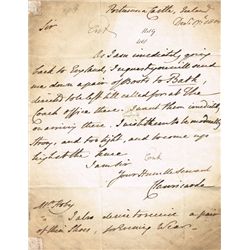 Portumna Castle, Ireland
Decr 17th
Sir
As I am immediatly going
back to England, I request you will send
me down a pair of Boots to Bath,
directed to be left till called for at the
Coach office there. I want them immediatly
on arriving there. I wish them to be moderatly
Strong, and too tight, and to come up
high at the knee
I am Sir
Your Hum: Servant
Clanricarde
Mr Hoby
I also desire to receive a pair
of thin Shoes, for Evening Wear